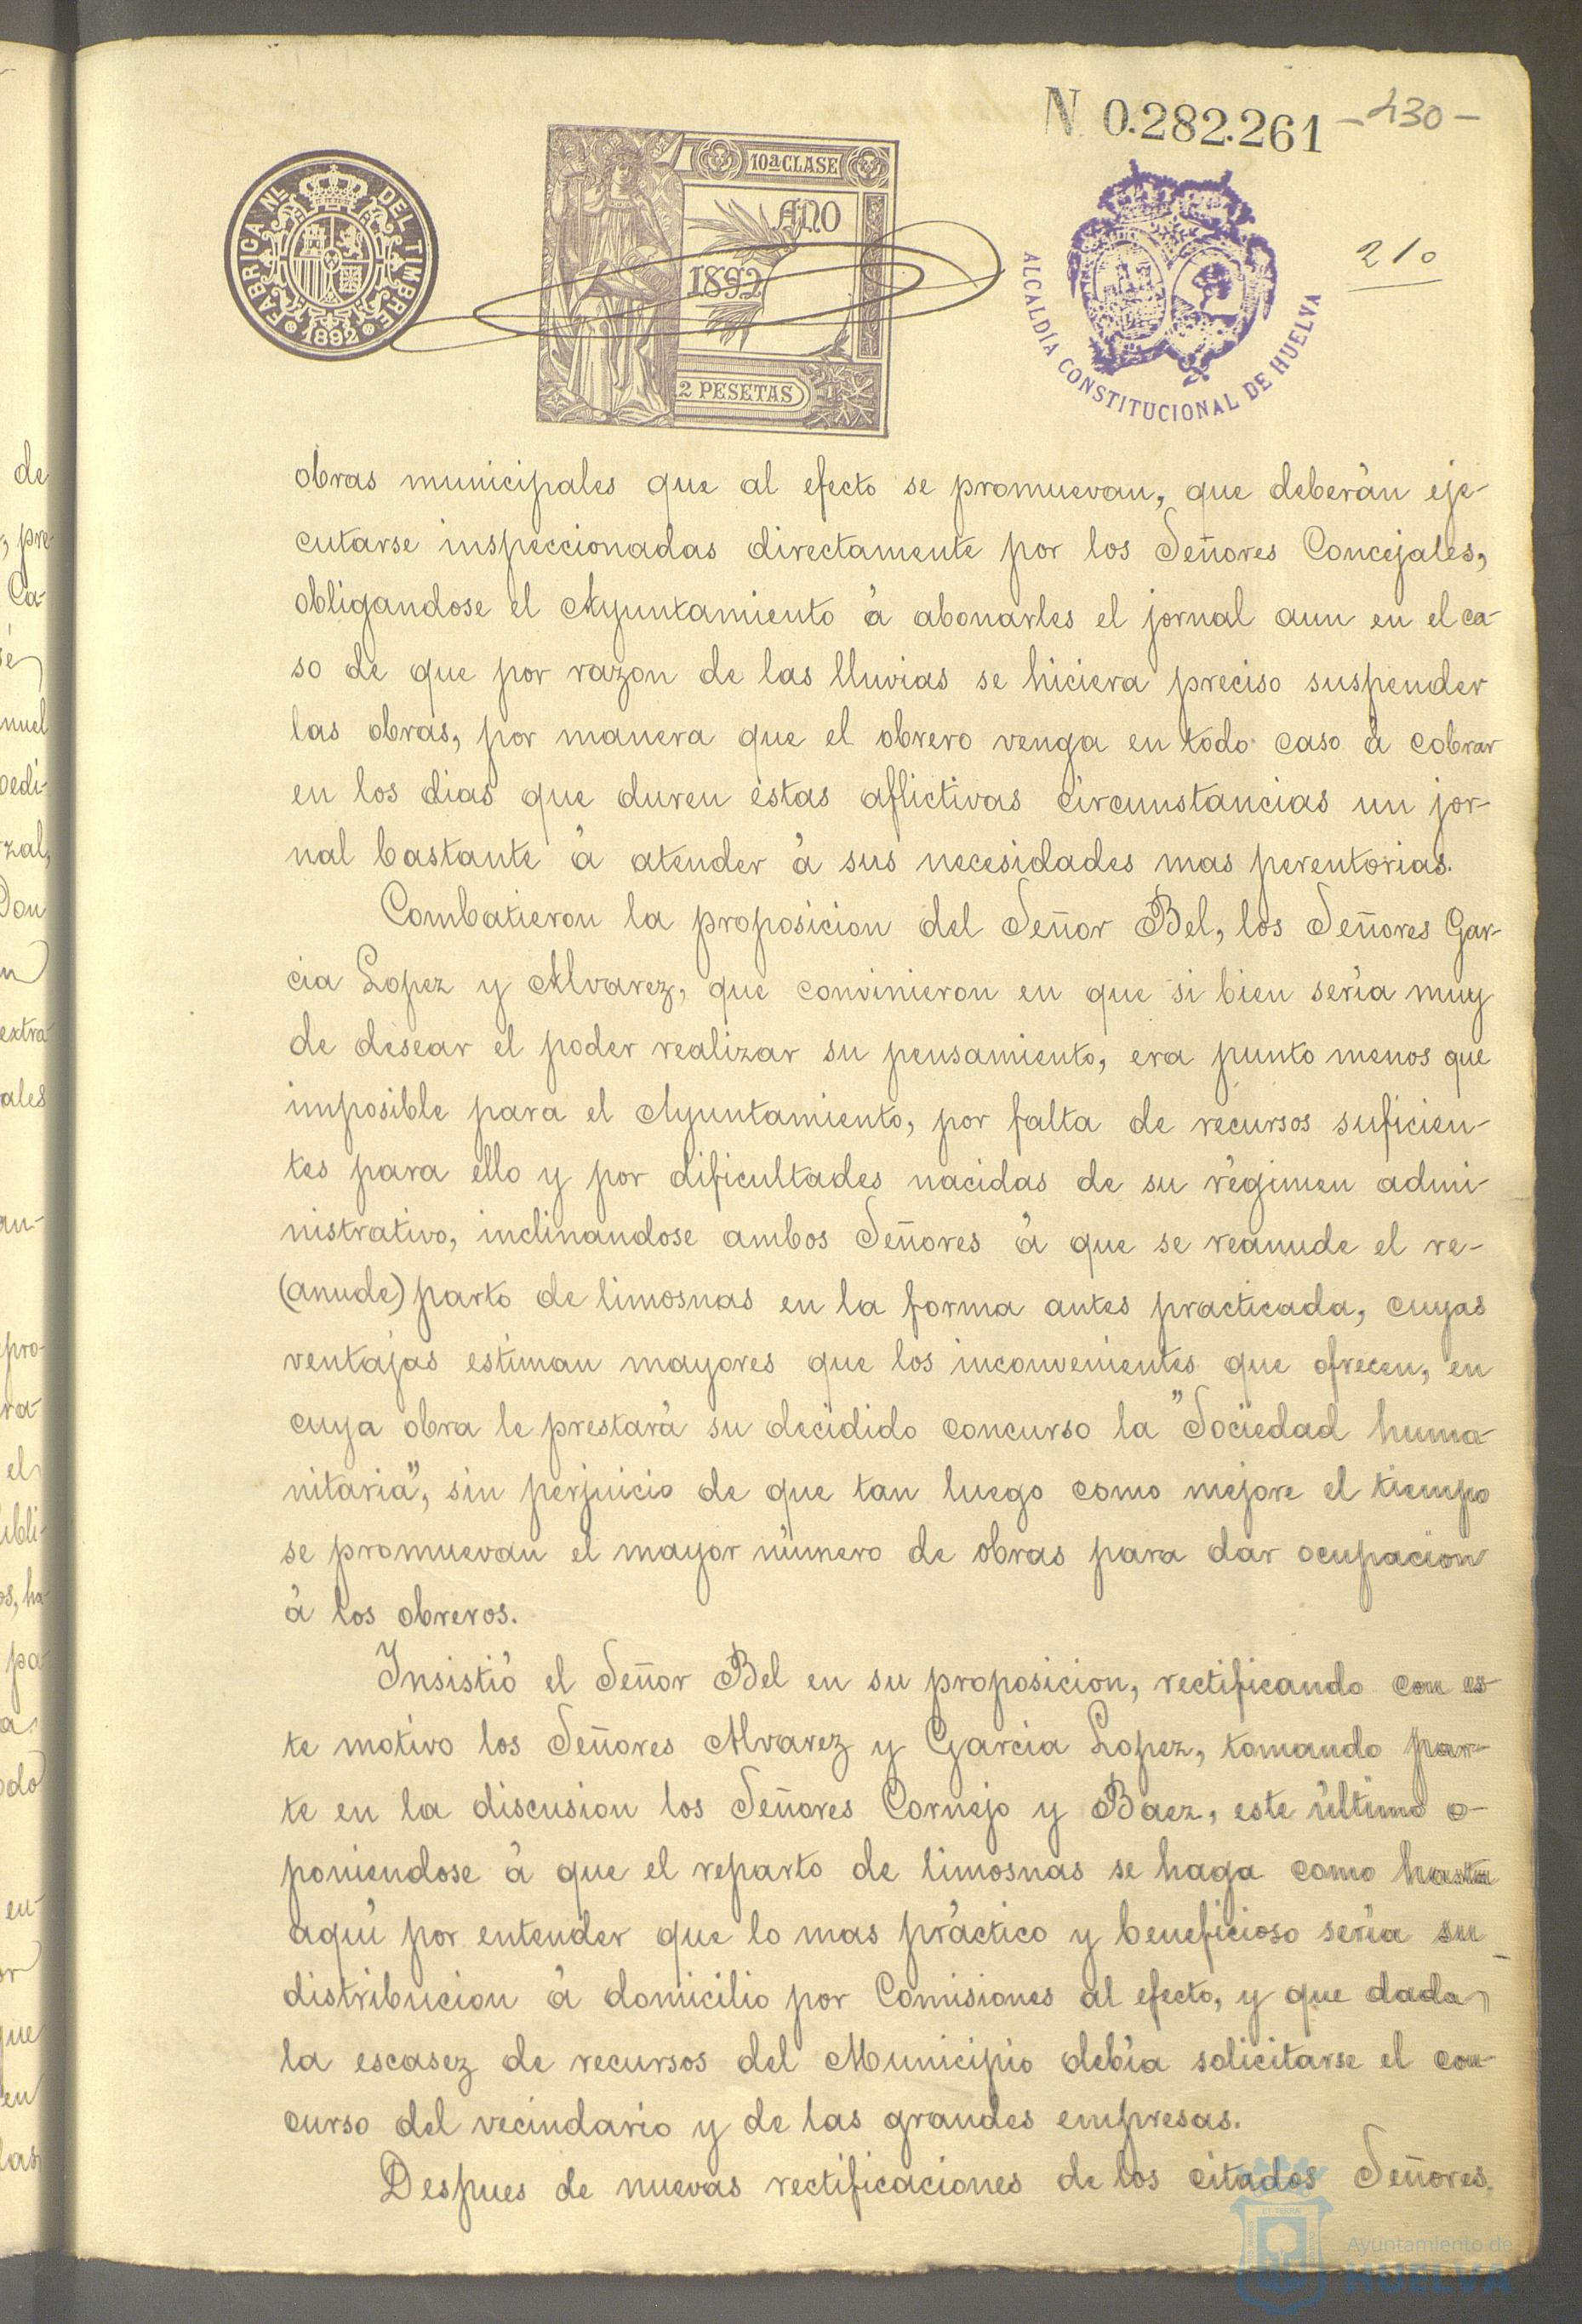 N. 0.282.261 -430-
FABRICA NL. DEL TIMBRE
1892
10ª CLASE
AÑO
1892
2 PESETAS
ALCALDÍA CONSTITUCIONAL DE HUELVA
210
obras municipales que al efecto se promuevan, que deberán eje-
cutarse inspeccionadas directamente por los Señores Concejales,
obligandose el Ayuntamiento á abonarles el jornal aun en el ca-
so de que por razon de las lluvias se hiciera preciso suspender
las obras, por manera que el obrero venga en todo caso á cobrar
en los dias que duren éstas aflictivas circunstancias un jor-
nal bastante á atender á sus necesidades mas perentorias.
Combatieron la proposicion del Señor Bel, los Señores Gar-
cia Lopez y Alvarez, que convinieron en que si bien sería muy
de desear el poder realizar su pensamiento, era punto menos que
imposible para el Ayuntamiento, por falta de recursos suficien-
tes para ello y por dificultades nacidas de su régimen admi-
nistrativo, inclinandose ambos Señores á que se reanude el re-
(anude) parto de limosnas en la forma antes practicada, cuyas
ventajas estiman mayores que los inconvenientes que ofrecen, en
cuya obra le prestará su decidido concurso la "Sociedad huma-
nitaria", sin perjuicio de que tan luego como mejore el tiempo
se promuevan el mayor número de obras para dar ocupacion
á los obreros.
Insistió el Señor Bel en su proposicion, rectificando con es-
te motivo los Señores Alvarez y Garcia Lopez, tomando par-
te en la discusion los Señores Cornejo y Baez, este último o-
poniendose á que el reparto de limosnas se haga como hasta
aquí por entender que lo mas práctico y beneficioso sería su
distribucion á domicilio por Comisiones al efecto, y que dada
la escasez de recursos del Municipio debía solicitarse el con-
curso del vecindario y de las grandes empresas.
Despues de nuevas rectificaciones de los citados Señores.
de
, pre-
Ca-
nuel
pedi-
rzal,
Don
extra-
ales
an-
epro-
ra-
el
ubli-
os, ha-
pa-
odo
en-
que
en
las
Ayuntamiento de
HUELVA